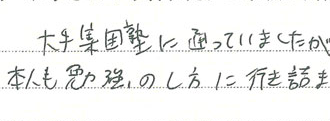 大手集団塾に通っていましたが
本人も勉強のし方に行き詰ま